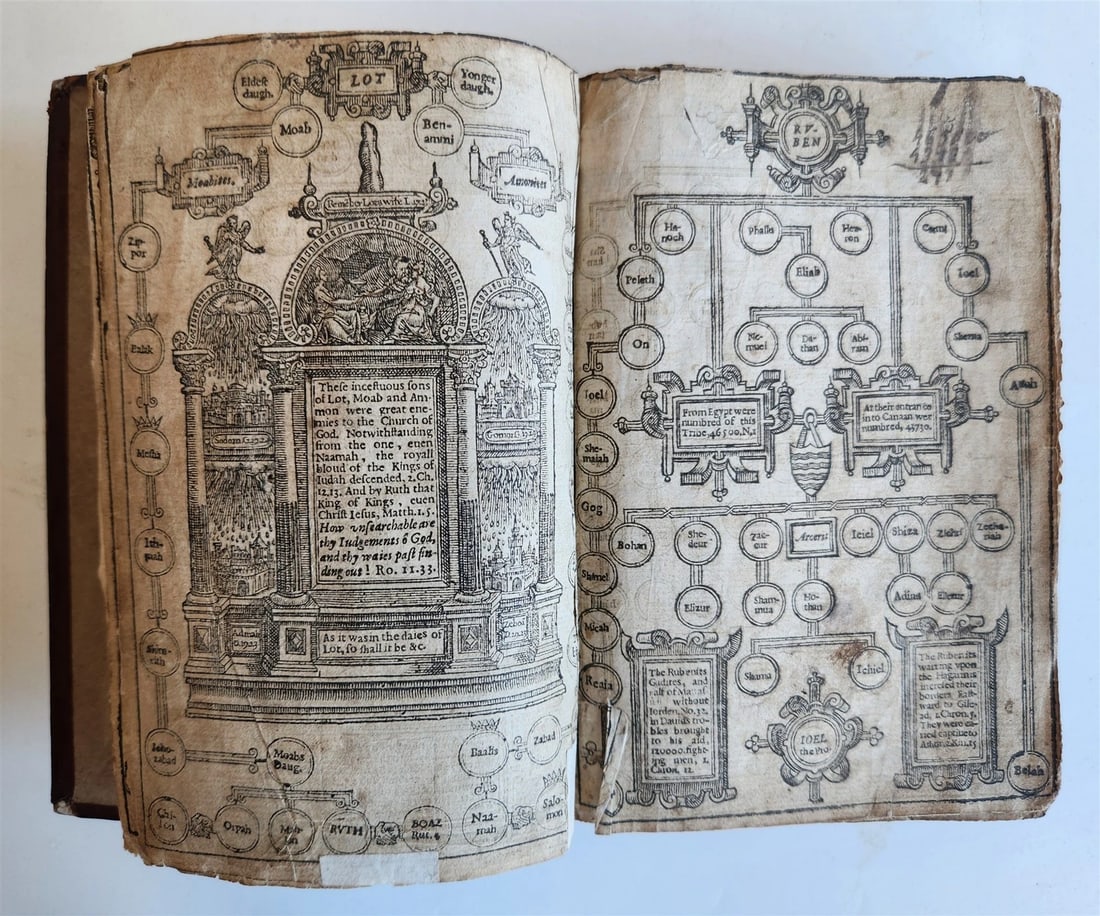 Eldest
daugh.
LOT
Yonger
daugh.
Moab
Ben-
ammi
Moabites.
Amonites
Remēber Lots wife L.17.32
Zip-
por
Balak
Mesha
Ith-
mah
Sodom G.19.24
Gomora G.19.24
These incestuous sons
of Lot, Moab and Am-
mon were great ene-
mies to the Church of
God. Notwithstanding
from the one, euen
Naamah, the royall
bloud of the Kings of
Iudah descended. 2.Ch.
12.13. And by Ruth that
King of Kings, euen
Christ Iesus, Matth.1.5.
How vnsearchable are
thy Iudgements ô God,
and thy waies past fin-
ding out! Ro. 11.33.
Admah
As it was in the daies of
Lot, so shall it be &c.
Iehо-
zabad
Moabs
Daug.
Baalis
Zabad
Chi-
lion
Orpah
Mah-
lon
RVTH
BOAZ
Rut. 4
Naa-
mah
Salo-
mon
RV-
BEN
Ha-
noch
Phallu
Hez-
ron
Carmi
Peleth
Eliab
Ioel
On
Ne-
muel
Da-
than
Abi-
ram
Shema
Ioel
From Egypt were
numbred of this
Tribe, 46500. N,1
At their entrance
into Canaan wer
numbred, 43730.
Azah
She-
maiah
Gog
Bohan
She-
deur
Zac-
cur
Arceri
Ieiel
Shiza
Zichri
Zecha-
riah
Shimei
Elizur
Sham-
mua
Ho-
than
Adina
Eliezer
Micah
Reaia
The Rubenits
Gadites, and
half of Manas
without
Iorden, No.32.
in Dauids tro-
bles brought
to his aid,
120000. fight-
ing men, 1.
Chron. 12.
Shama
Iehiel
IOEL
the Pro.
The Rubenits
warring vpon
the Hagarims
increased their
borders East-
ward to Gile-
ad, 1.Chron.5.
They were ca-
ried captiue to
Belah